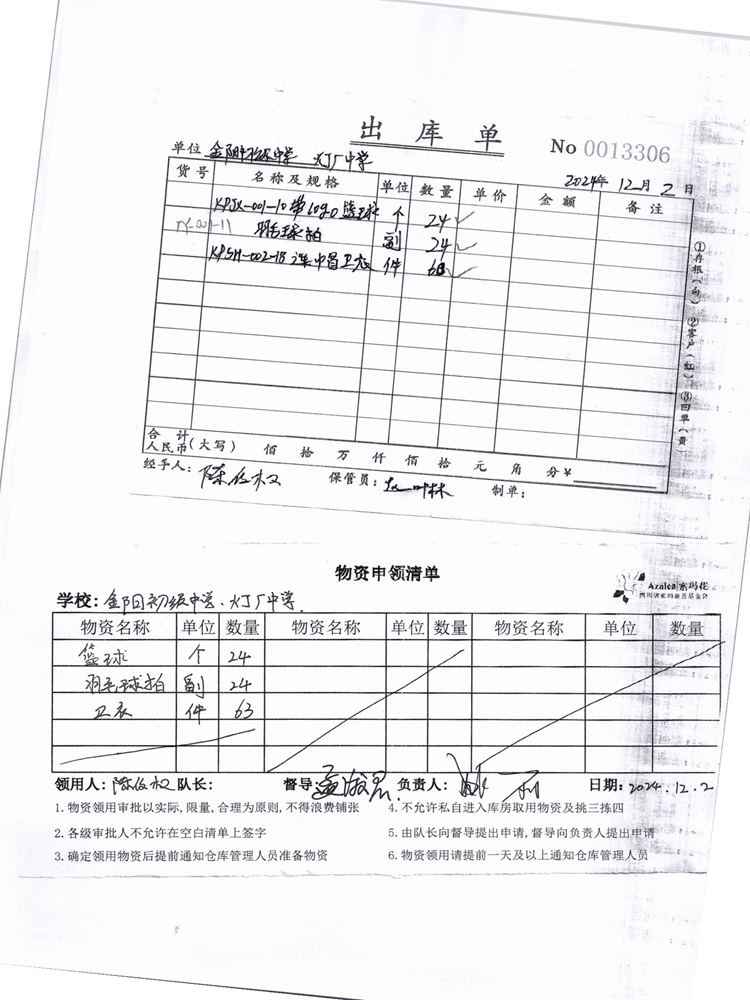 出 库 单
No 0013306
单位 金阳初级中学 火丁厂中学
2024年 12月 2日
货号 名称及规格 单位 数量 单价 金额 备注
KPJX-001-10 带logo篮球 个 24
羽毛球拍 副 24
KPSH-002-18 连中昌卫衣 件 63
①存根(白) ②客户(红) ③回单(黄
合计
人民币(大写) 佰 拾 万 仟 佰 拾 元 角 分¥
经手人: 保管员: 制单:
物资申领清单
Azalea 索玛花
学校: 金阳初级中学、火丁厂中学
物资名称 单位 数量 物资名称 单位 数量 物资名称 单位 数量
篮球 个 24
羽毛球拍 副 24
卫衣 件 63
领用人: 队长: 督导: 负责人: 日期: 2024.12.2
1. 物资领用审批以实际, 限量, 合理为原则, 不得浪费铺张
4. 不允许私自进入库房取用物资及挑三拣四
2. 各级审批人不允许在空白清单上签字
5. 由队长向督导提出申请, 督导向负责人提出申请
3. 确定领用物资后提前通知仓库管理人员准备物资
6. 物资领用请提前一天及以上通知仓库管理人员